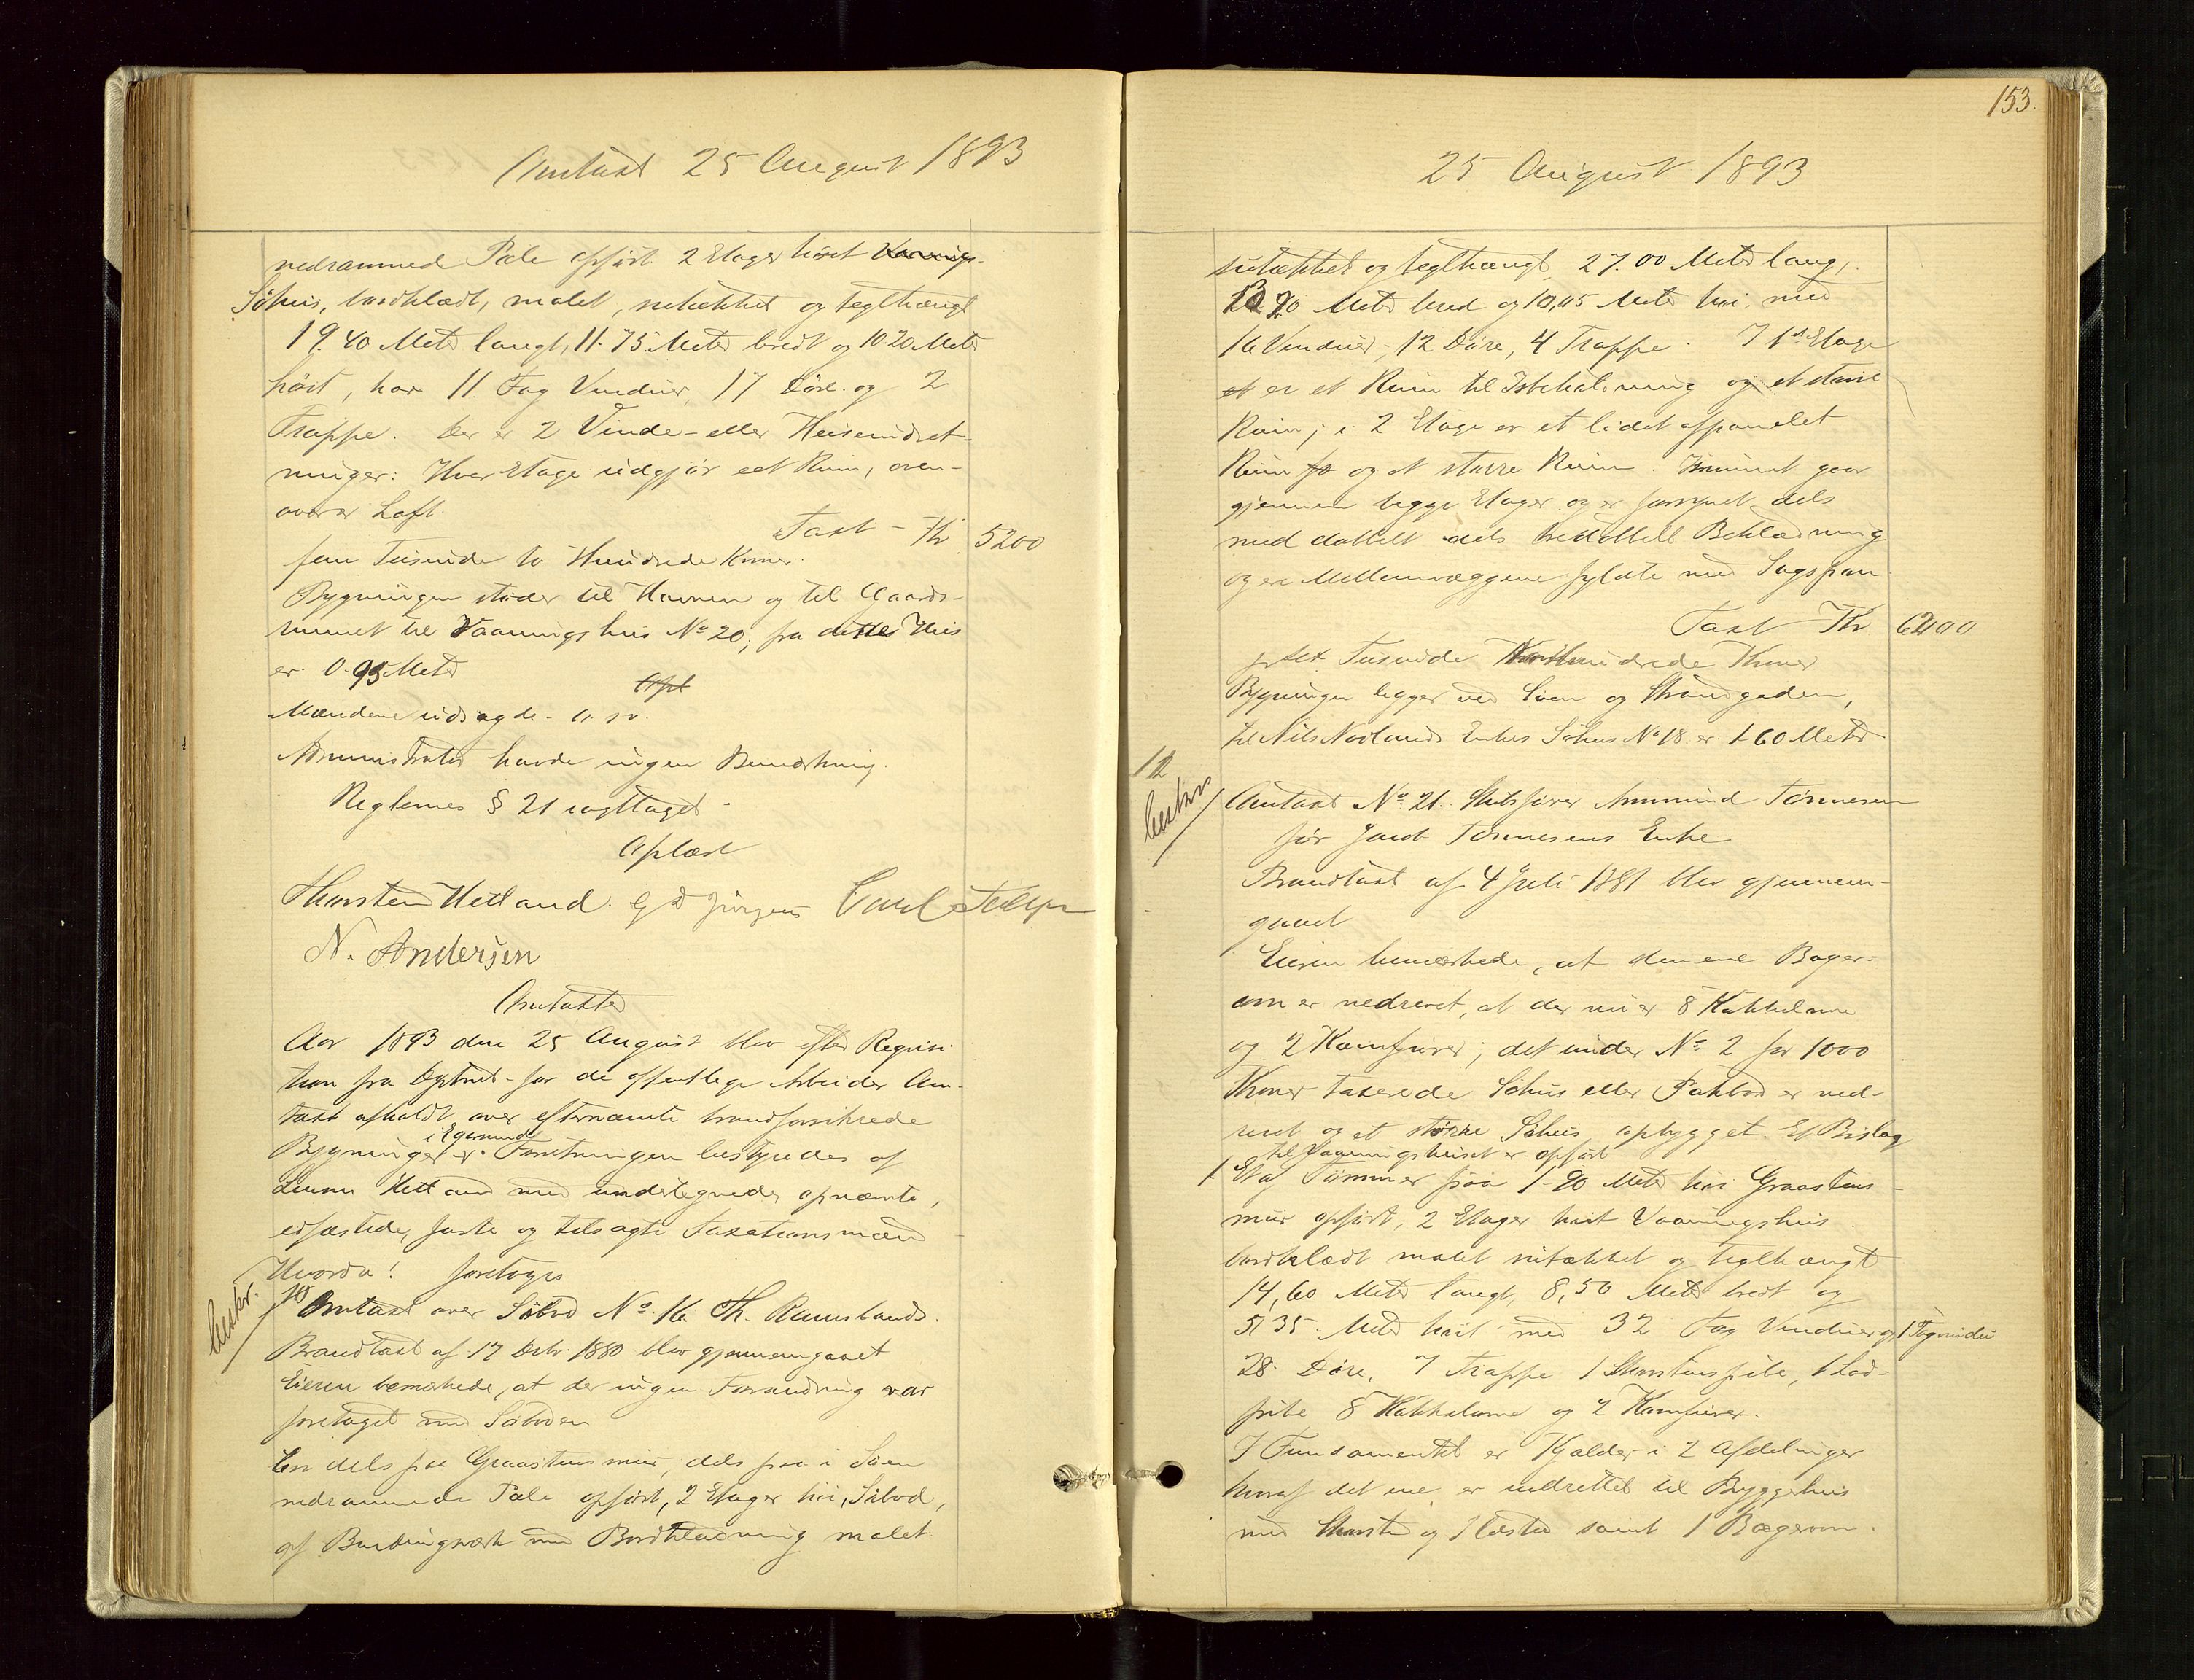 Omtaxt 25 August 1893
nedrammed Pæle opført 2 Etager høiet Vaanings-
Søhus, bordklædt, malet, sutækket og teglhængt
19.40 Meter langt, 11.75 Meter bredt og 10.20 Meter
høit, har 11 Fag Vinduer, 17 Døre og 2
Trappe. Der er 2 Vinde- eller Heiseindret-
ninger: Hver Etage udgjør eet Rum, oven-
over er Loft.
Taxt - Kr 5200
fem Tusinde to Hundrede Kroner.
Bygningen støder til Havnen og til Gaards-
rummet til Vaaningshus No 20; fra dette Hus
er 0.95 Meter
Opl
Mændene udsagde - o. s. v.
Administrator havde ingen Bemærkning.
Reglernes § 21 iagttaget -
Oplæst
Thorsten Hetland. G D Jürgens Carl
N. Andersen
Omtaxter
Aar 1893 den 25 August blev efter Requisi-
tion fra for de offentlige Arbeider Om-
taxt afholdt over efternævnte brandforsikrede
Bygninger i Egersund. Forretningen bestyredes af
Hetland med undertegnede opnævnte,
edfæstede, faste og tilsagte Taxationsmænd
Hvorda! foretoges
10 Omtaxt over Søbod No 16 Th. Ramslands.
Brandtaxt af 17 Debr. 1880 blev gjennemgaaet
Eieren bemærkede, at der ingen Forandring var
foretaget med Søboden
En dels paa Graastensmur, dels paa i Søen
nedrammede Pæle opført, 2 Etager høi, Søbod,
af Bindingsværk med Bordklædning malet
153.
25 August 1893
sutækket og teglhængt 27.00 Meter lang,
Meter bred og 10,05 Meter høi, med
16 Vinduer, 12 Døre, 4 Trappe. I 1ste Etage
er et Rum til Isbeholdning og et større
Rum; i 2 Etage er et lidet afpanelet
Rum og et større Rum. Isrummet gaar
gjennem begge Etager og er forsynet dels
med dobbelt dels tredobbelt Beklædning
og er Mellemvæggene fyldte med Sagspon
Taxt Kr 6200
sex Tusinde hundrede Kroner
Bygningen ligger ved Søen og Strandgaden,
til Nils Nodlands Enkes Søhus No 18 er 1.60 Meter
12
Omtaxt No 21. Skibsfører Ommund Tønnesen
for Jacob Tønnesens Enke
Brandtaxt af 4 Juli 1881 blev gjennem-
gaaet
Eieren bemærkede, at den ene Bager-
ovn er nedrevet, at der nu er 8 Kakkelovne
og 2 Komfurer; det under No 2 for 1000
Kroner taxerede Søhus eller Pakbod er ned-
revet og et større Søhus opbygget. Et Bislag
til Vaaningshuset er opført
1. Et af Tømmer paa 1.90 Meter høi Graastens-
mur opført, 2 Etager høit Vaaningshus
bordklædt malet sutækket og teglhængt
14,60 Meter langt, 8,50 Meter bredt og
5,35 Meter høit med 32 Fag Vinduer og 1 Tagvindu
28 Døre, 7 Trappe 1 Skorstenspibe, 1 Lod-
pibe 8 Kakkelovne og 2 Komfurer.
I Fundamentet er Kjelder i 2 Afdelinger
hvoraf det ene er indrettet til Bryggehus
med Skorsten og samt 1 Bagerovn.